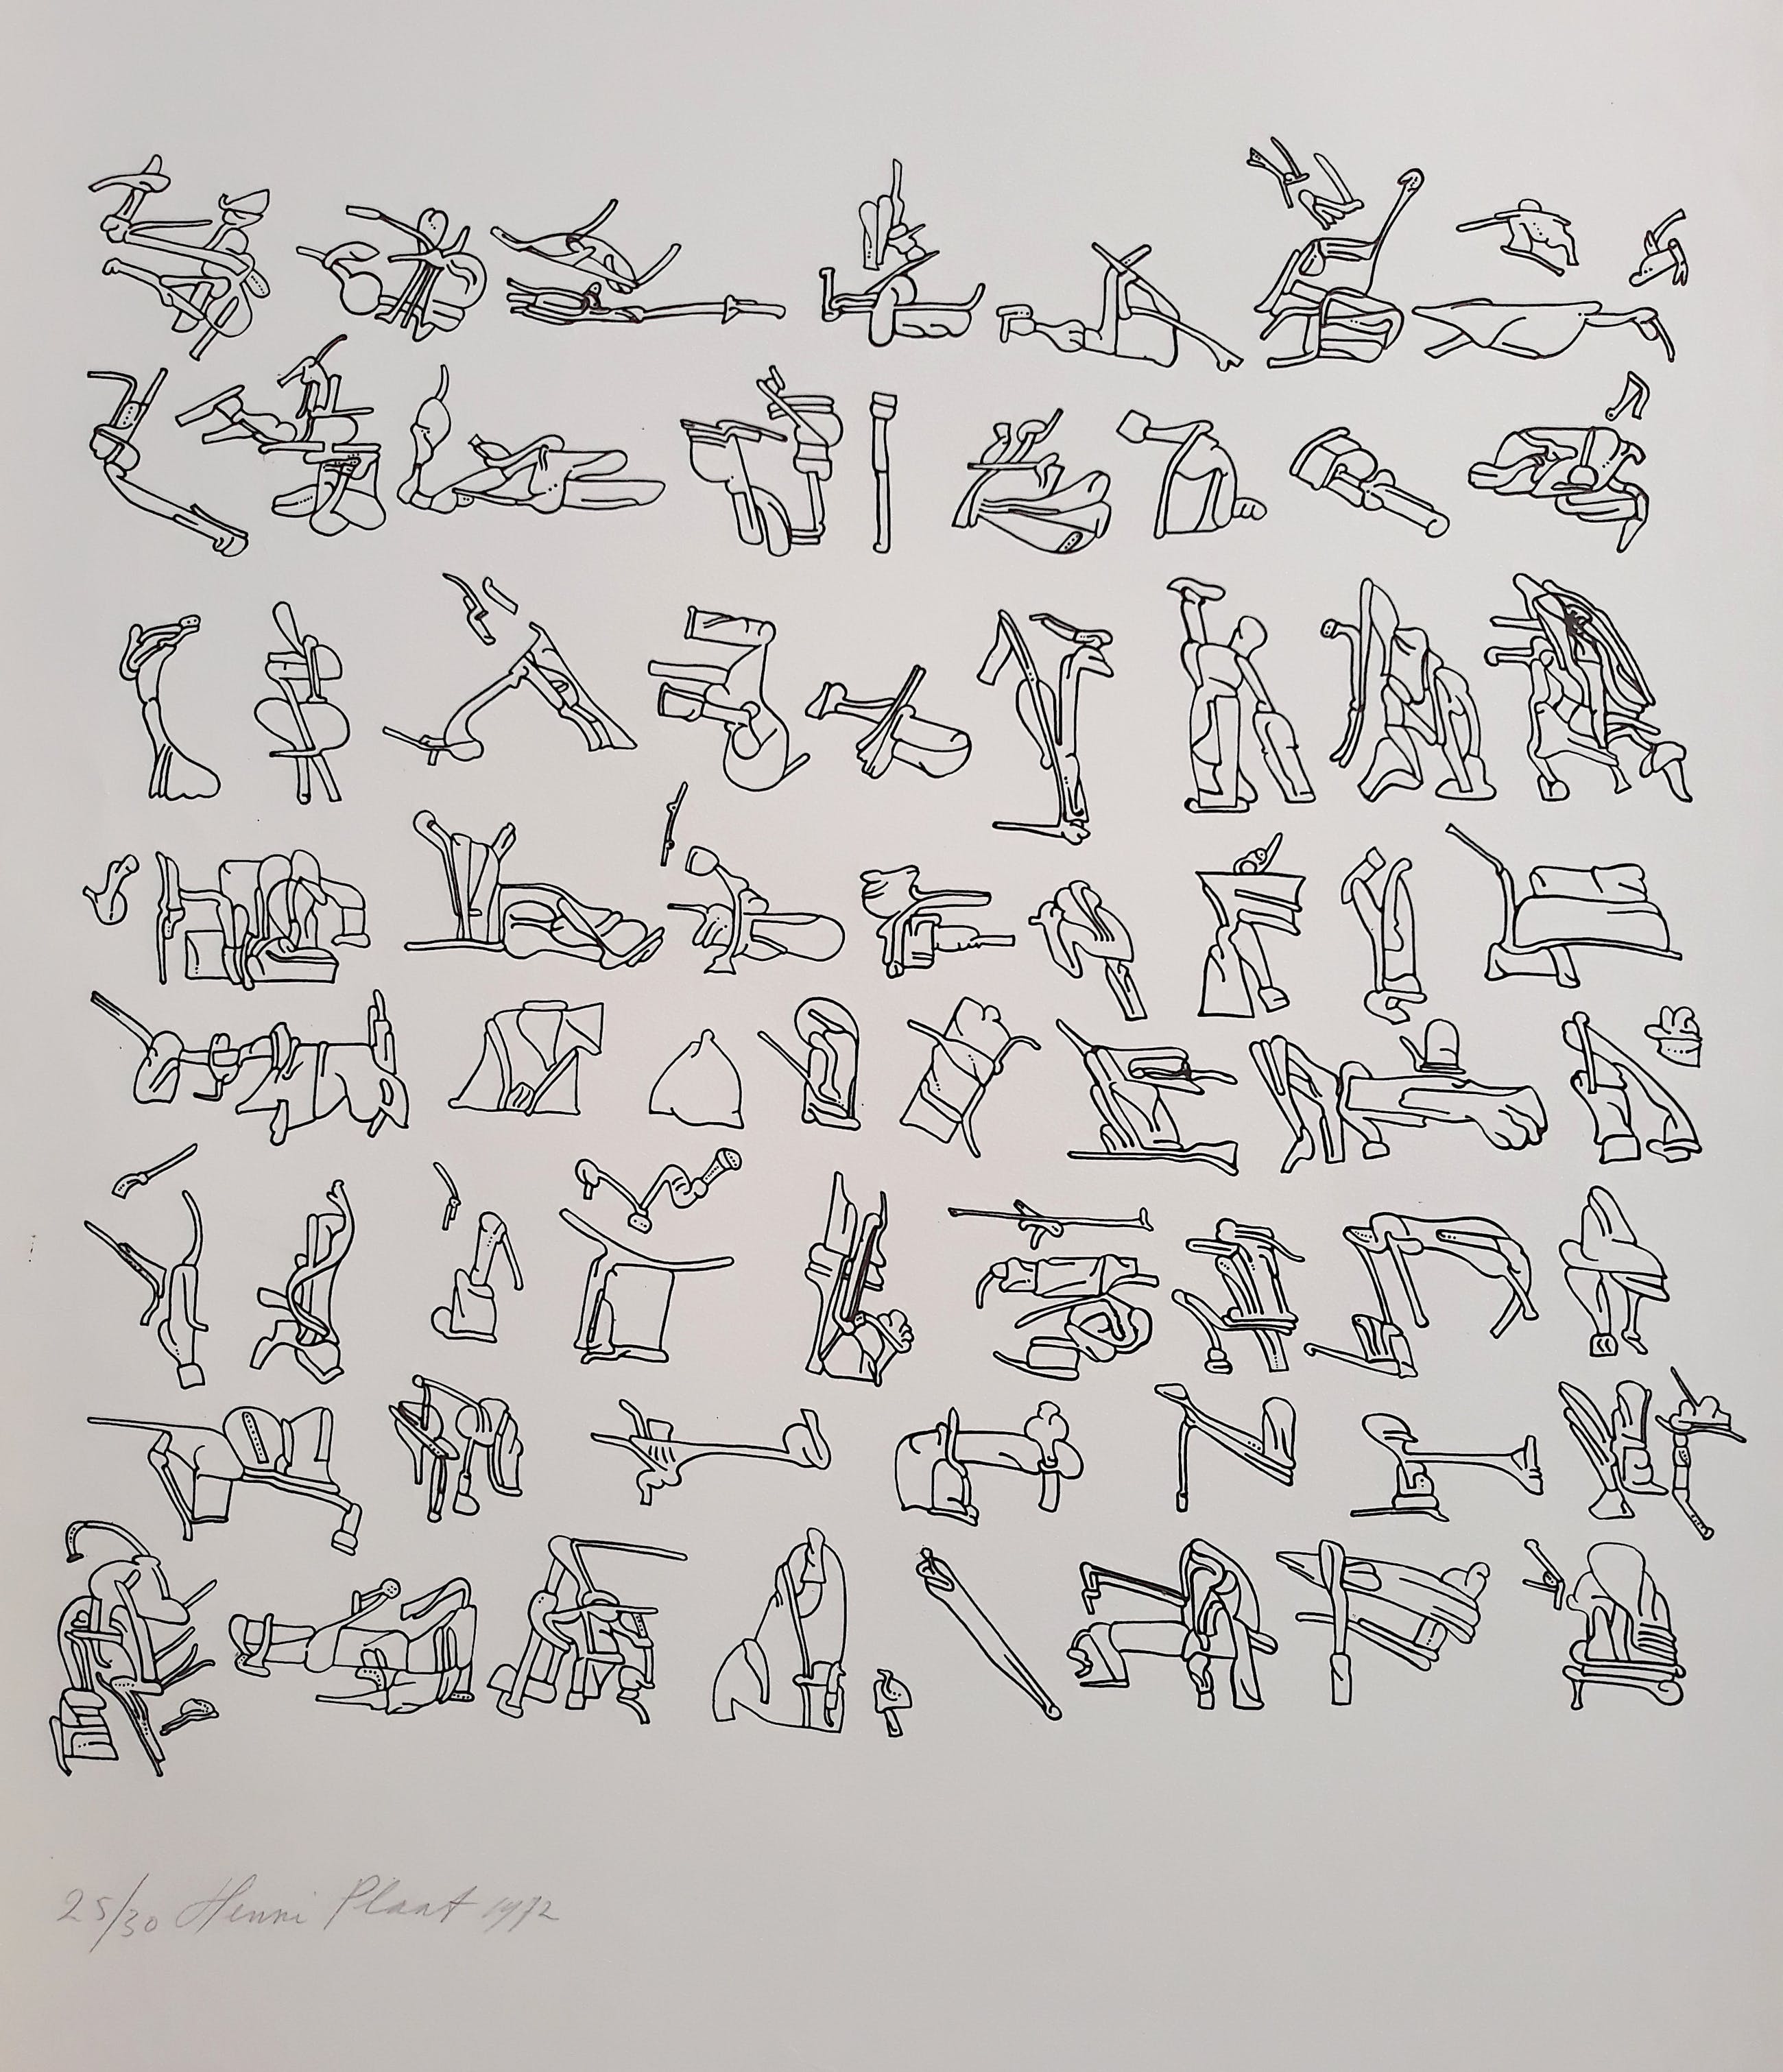 25/30 Henni Plaat 1972